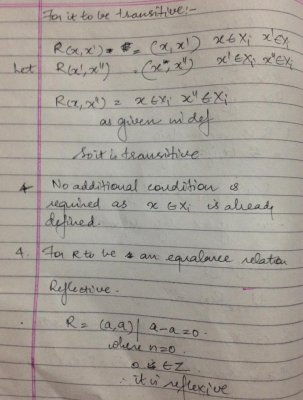 For it to be transitive:-
R(x,x') = (x,x') x∈Xi x'∈Xi
Let R(x',x'') = (x', x'') x'∈Xi x''∈Xi
R(x,x'') = x∈Xi x''∈Xi
as given in def
So it is transitive
No additional condition is
required as x∈Xi is already
defined.
4. For R to be an equalance relation
Reflective.
R = (a,a) | a-a=0.
where n=0.
0 ∈ Z
∴ it is reflexive